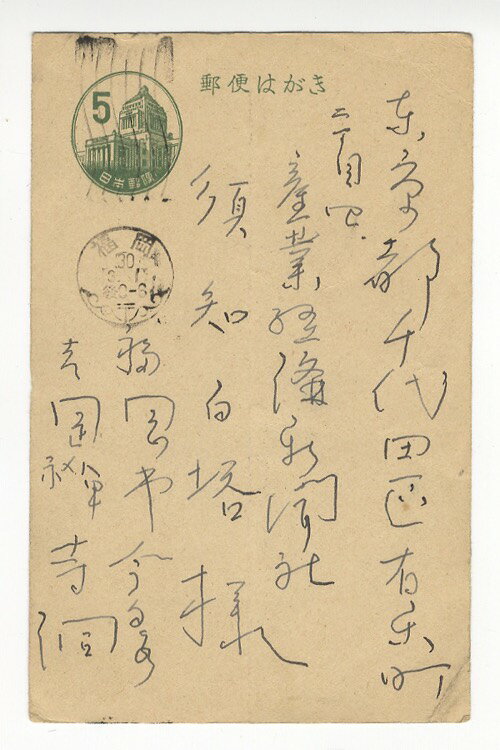 郵便はがき
5
日本郵便
福岡
30
東京都千代田区有楽町
二丁目四
産業経済新聞社
須知白塔様
福岡市今泉
吉岡禅寺洞